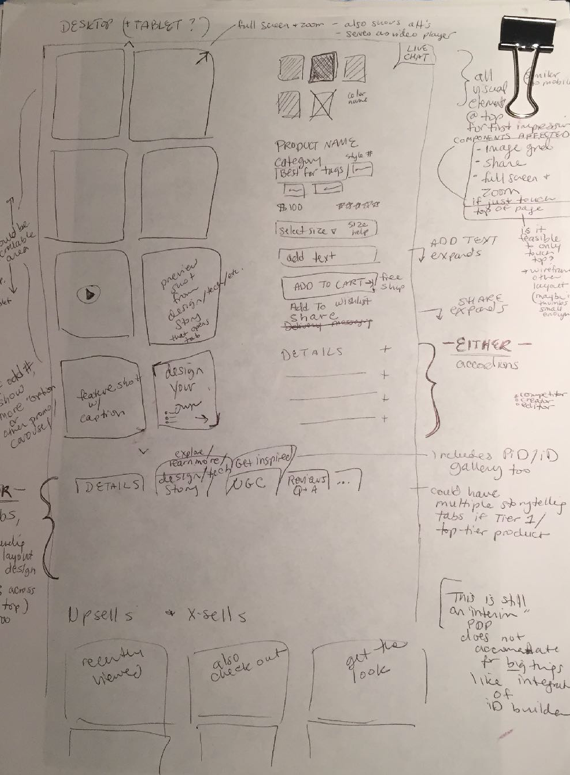 DESKTOP (+ TABLET?)
full screen + zoom - also shows alt's
- serves as video player
LIVE
CHAT
all
visual
@ top
for first
COMPONENTS AFFECTED
- Image grid
- share
- full screen +
zoom
if just touch
top of page
Is it
feasible
+ only
touch
top?
+ wireframe
other
layout
(maybe
color
name
PRODUCT NAME
Category
style #
Best for tags
$100
select size v
size
help
add text
ADD TO CART →
free
ship
Add to wishlist
share
Delivery message
ADD TEXT
expands
SHARE
expands
DETAILS +
+
+
+
- EITHER -
accordions
preview
shot
from
design/tech/etc.
story
that opens
tab
feature shot
w/
caption
design
your
own
add #
show
more option
or
other promo
carousel
explore/
learn more/
design/tech
story
Get inspired
DETAILS
UGC
REVIEWS
Q + A
...
includes PiD/iD
gallery too
could have
multiple storytelling
tabs if Tier 1/
top-tier product
layout
design
across
top)
Upsells + X-sells
recently
viewed
also
check out
get the
look
This is still
an interim
PDP
does not
accommodate
for big things
like
of
iD builder